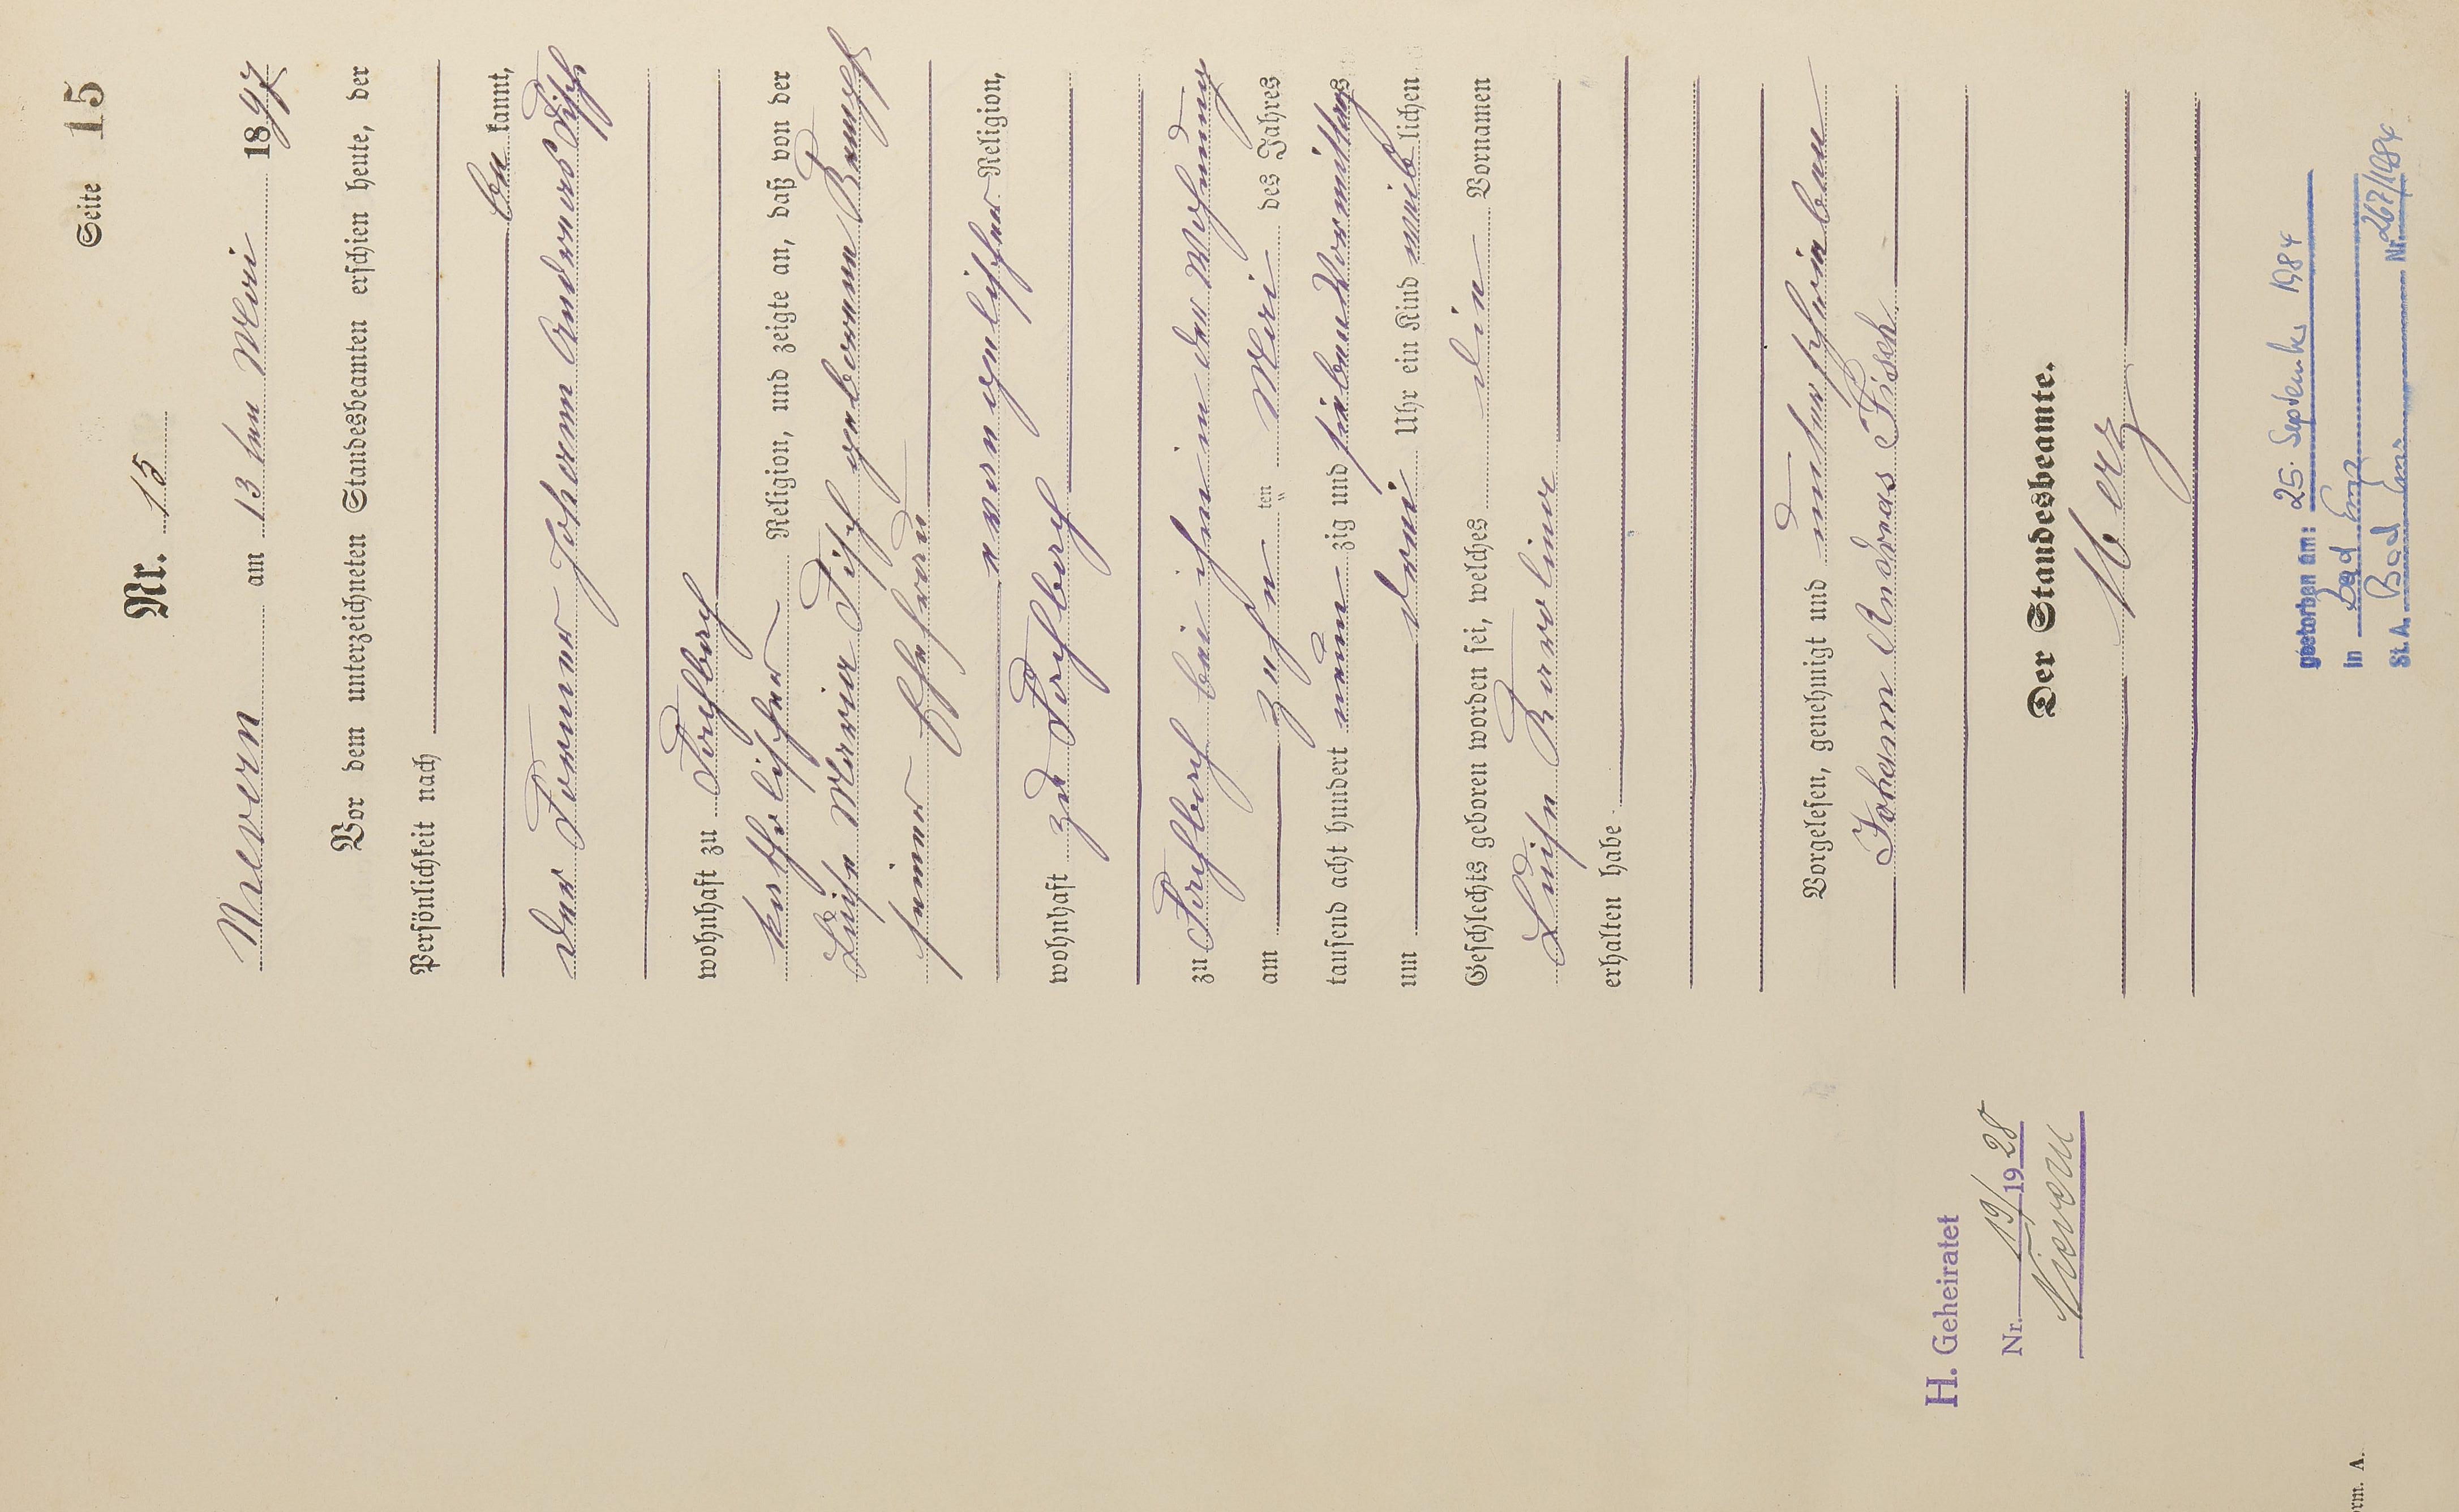 Seite 15
Nr. 15
Nievern am 13ten Mai 1897
Vor dem unterzeichneten Standesbeamten erschien heute, der
Persönlichkeit nach
be kannt,
der Former Johann Andreas Fisch
wohnhaft zu Fachbach
katholischer Religion, und zeigte an, daß von der
Luise Maria Fisch geborenen
seiner Ehefrau
evangelischer Religion,
wohnhaft zu Fachbach
zu Fachbach bei ihm in der Wohnung
am zehn ten Mai des Jahres
tausend acht hundert neun zig und sieben Vormittags
um drei Uhr ein Kind weib lichen
Geschlechts geboren worden sei, welches die Vornamen
Luise Karoline
erhalten habe
Vorgelesen, genehmigt und unterschrieben
Johann Andreas Fisch
Der Standesbeamte.
H. Geheiratet
Nr. 19/1928
Nievern
gestorben am: 25. September 1984
in Bad Ems
St. A. Bad Ems Nr. 267/1984
orm. A.